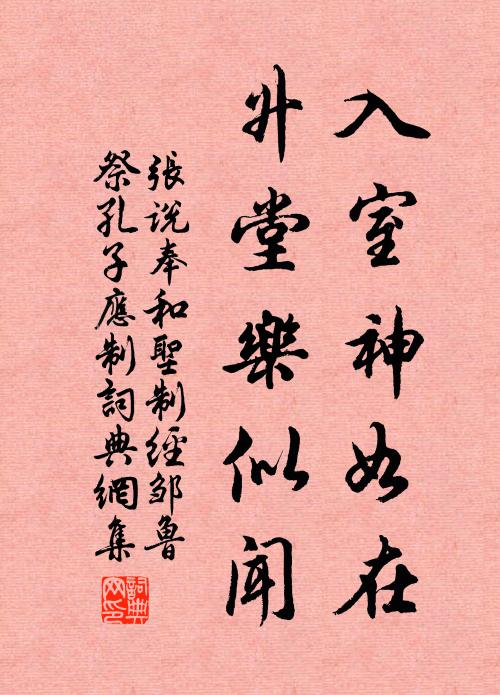 入室神如在
升堂樂似聞
張説奉和聖制經邹魯
祭孔子應制詞典網集
詞典网印